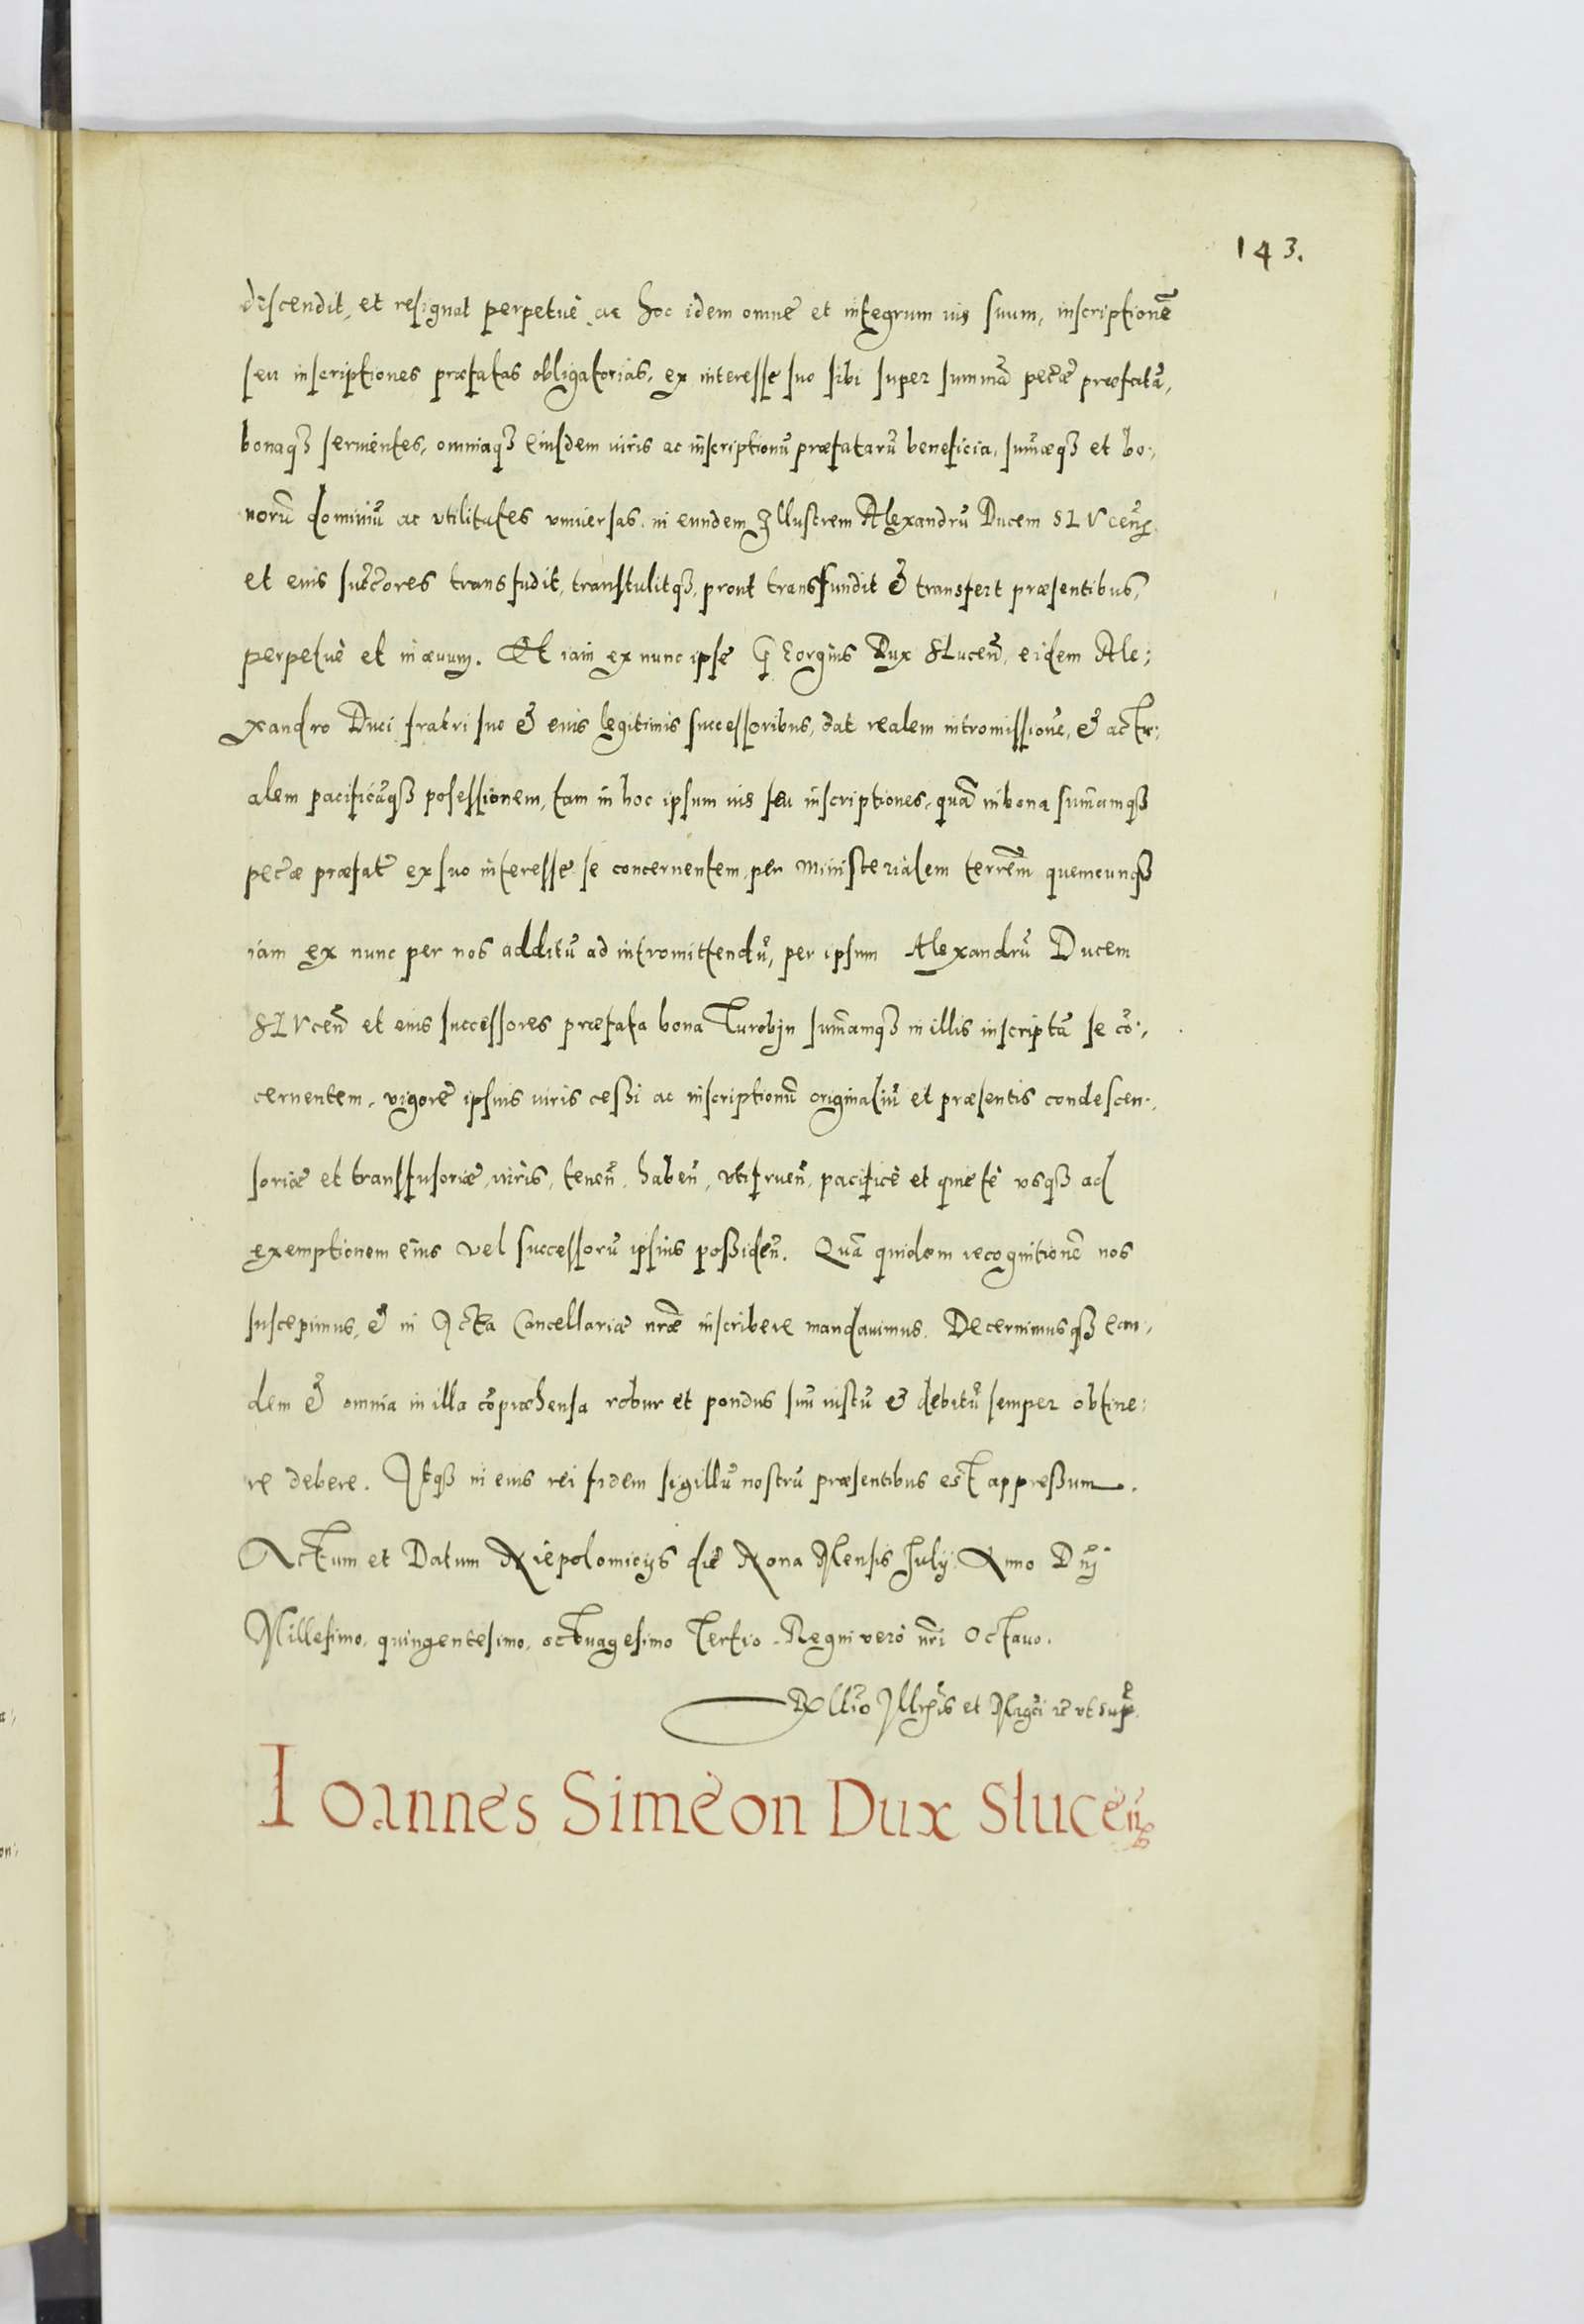 143.
discendit, et resignat perpetuè, ac hoc idem omne et integrum ius suum, inscriptionē
seu inscriptiones præfatas obligatorias, ex interesse suo sibi super summā pec̃æ præfatā,
bonaqȝ seruientes, omniaqȝ eiusdem iuris ac inscriptionũ præfatarũ beneficia, sum̃æqȝ et bo:,
norũ dominiũ ac vtilitates vniuersas, in eundem Illustrem Alexandrũ Ducem SLVcen̄
et eius suc̃c̃ores transfudit, transtulitqȝ, prout transfundit & transfert præsentibus,
perpetuè et in æuum. Et iam ex nunc ipse Georgius Dux SLucen̄, eidem Ale:
xandro Duci fratri suo & eius legitimis successoribus, dat realem intromissionẽ, & actu:,
alem pacificāqȝ posessionem, tam in hoc ipsum ius seu inscriptiones, quā in bona sum̃amqȝ
pec̃æ præfat̃ ex suo interesse se concernentem, per Ministerialem terrēm quemcunqȝ
iam ex nunc per nos additũ ad intromittendũ, per ipsum Alexandrũ Ducem
SLVcen̄ et eius successores præfata bona Turobÿn sum̃amqȝ in illis inscriptā se cõ:,
cernentem, vigore ipsius iuris cessi ac inscriptionũ originaliũ et præsentis condescen:,
soriæ et transfusoriæ, iuris, tenen̄, haben̄, vtifruen̄, pacificè et quietè vsqȝ ad
exemptionem eius vel successorũ ipsius poßiden̄. Quā quidem recognitionē nos
suscepimus, & in Acta Cancellariæ nr̃æ inscribere mandauimus. Decernimusqȝ ean,
dem & omnia in illa cõpræhensa robur et pondus suũ iustũ & debitũ semper obtine:
re debere. Itqȝ in eius rei fidem sigillũ nostrũ præsentibus est appreßum.
Actum et Datum Niepolomicijs die Nona Mensis Julij, Anno Dn̄j
Millesimo, quingentesimo, octuagesimo Tertio. Regni verò nr̃i Octauo.
R̃llio Illr̃is et Mag̃ci &c vt sup̃.
Ioannes Simèon Dux Slucen̄